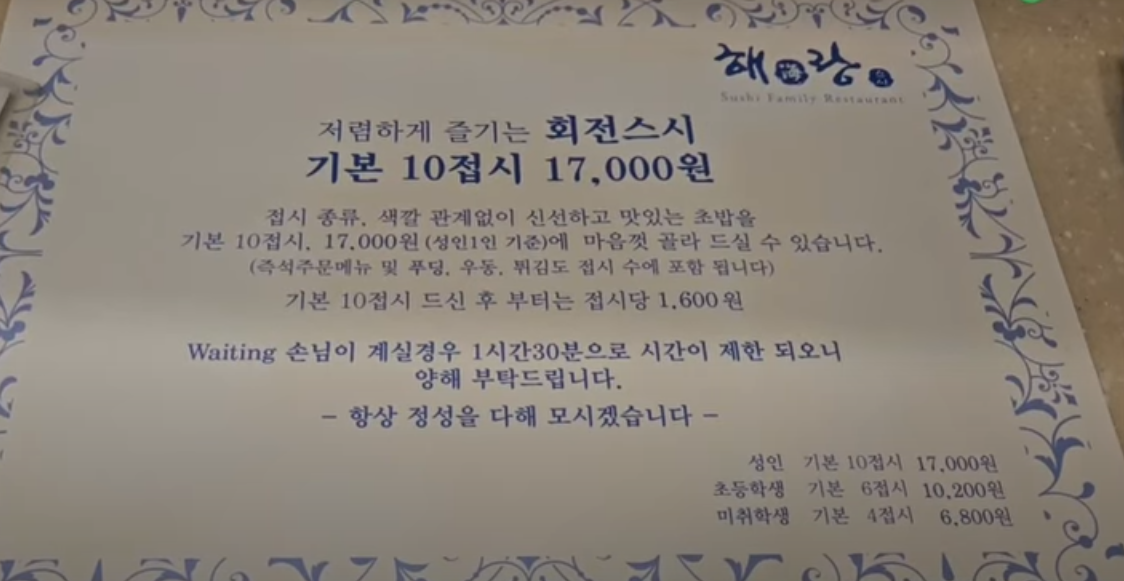 해海랑
Sushi Family Restaurant
저렴하게 즐기는 회전스시
기본 10접시 17,000원
접시 종류, 색깔 관계없이 신선하고 맛있는 초밥을
기본 10접시, 17,000원 (성인1인 기준)에 마음껏 골라 드실 수 있습니다.
(즉석주문메뉴 및 푸딩, 우동, 튀김도 접시 수에 포함 됩니다)
기본 10접시 드신 후 부터는 접시당 1,600원
Waiting 손님이 계실경우 1시간30분으로 시간이 제한 되오니
양해 부탁드립니다.
- 항상 정성을 다해 모시겠습니다 -
성인 기본 10접시 17,000원
초등학생 기본 6접시 10,200원
미취학생 기본 4접시 6,800원